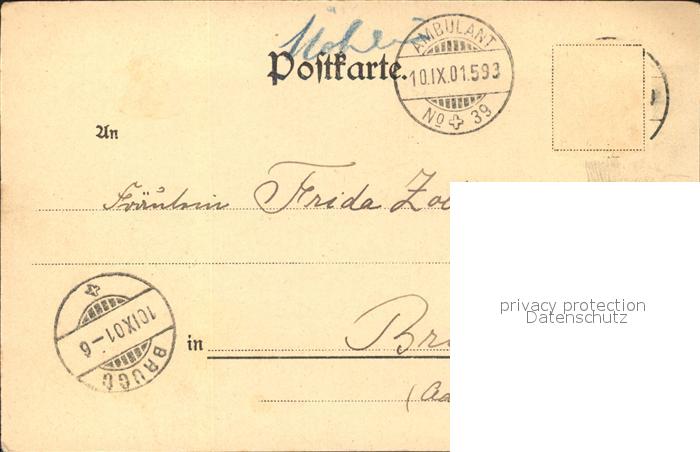 Postkarte.
AMBULANT
10.IX.01.593
No 39
An
Fräulein Frida
in
BRUGG
10 IX 01-6
privacy protection
Datenschutz